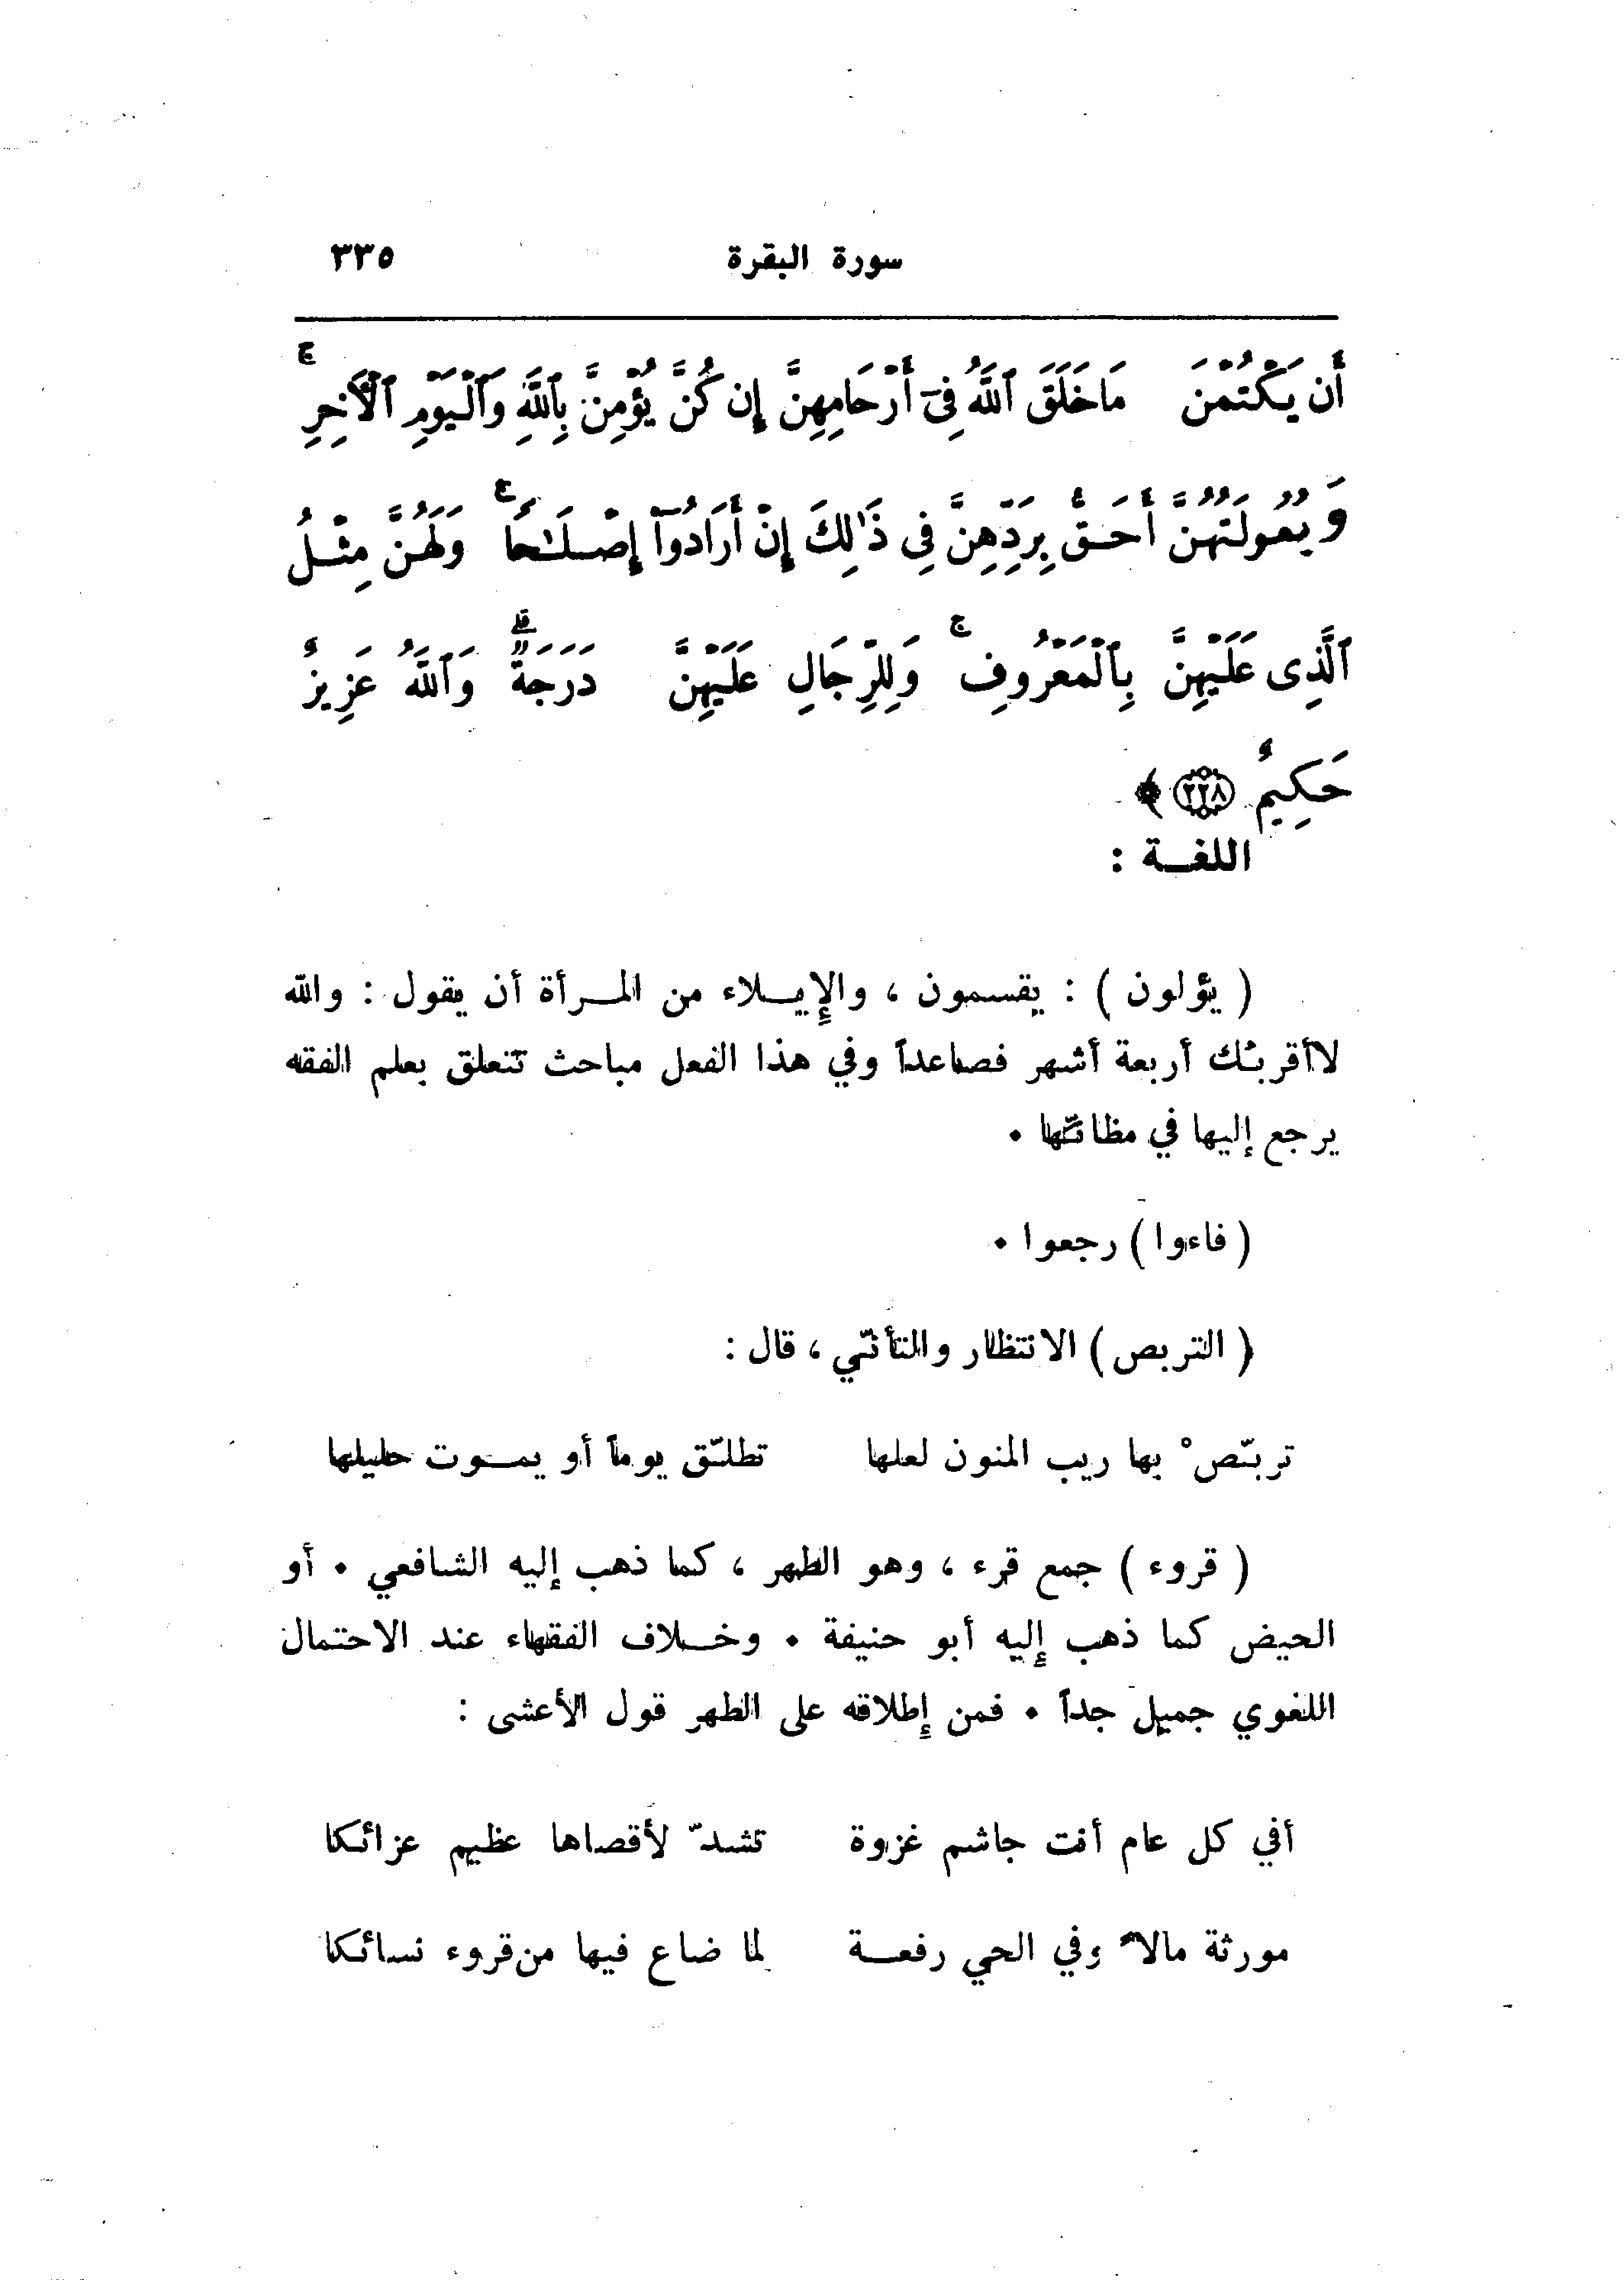 سورة البقرة ٣٣٥
أَن يَكْتُمْنَ مَا خَلَقَ ٱللَّهُ فِىٓ أَرْحَامِهِنَّ إِن كُنَّ يُؤْمِنَّ بِٱللَّهِ وَٱلْيَوْمِ ٱلْأَخِرِ ۚ
وَبُعُولَتُهُنَّ أَحَقُّ بِرَدِّهِنَّ فِى ذَٰلِكَ إِنْ أَرَادُوٓا۟ إِصْلَٰحًا ۚ وَلَهُنَّ مِثْلُ
ٱلَّذِى عَلَيْهِنَّ بِٱلْمَعْرُوفِ ۚ وَلِلرِّجَالِ عَلَيْهِنَّ دَرَجَةٌ ۗ وَٱللَّهُ عَزِيزٌ
حَكِيمٌ ٢٢٨ ﴾
اللغـة :
( يؤلون ) : يقسمون ، والإيـلاء من المـرأة أن يقول : والله
لاأقربنك أربعة أشهر فصاعداً وفي هذا الفعل مباحث تتعلق بعلم الفقه
يرجع إليها في مظانّها .
( فاءوا ) رجعوا .
( التربص ) الانتظار والتأنّي ، قال :
تربّصْ بها ريب المنون لعلها تطلّق يوماً أو يمـوت حليلها
( قروء ) جمع قرء ، وهو الطهر ، كما ذهب إليه الشافعي . أو
الحيض كما ذهب إليه أبو حنيفة . وخـلاف الفقهاء عند الاحتمال
اللغوي جميل جداً . فمن إطلاقه على الطهر قول الأعشى :
أفي كل عام أنت جاشم غزوة تشدّ لأقصاها عظيم عزائكا
مورثة مالاً وفي الحي رفعـة لما ضاع فيها من قروء نسائكا